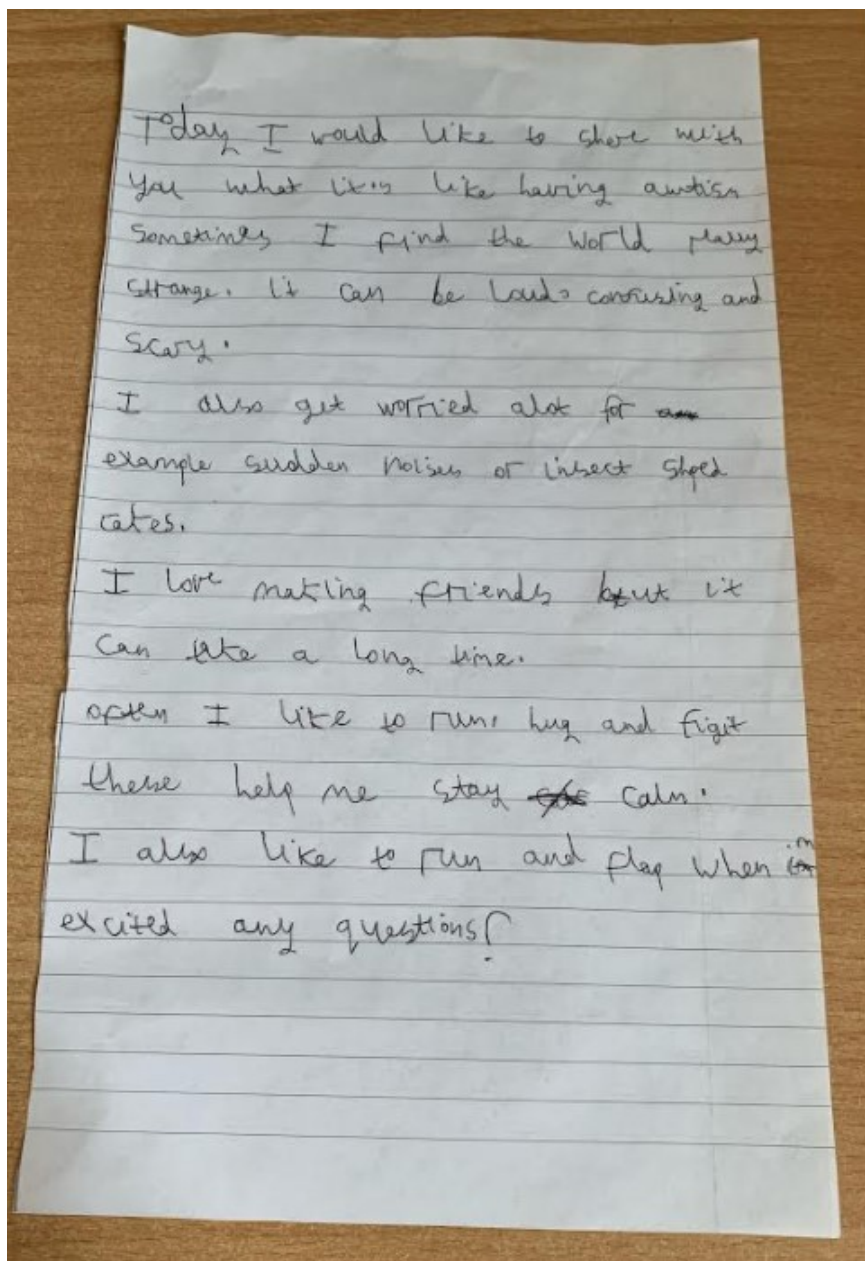 Today I would like to shere with
you what it is like having autism
Sometimes I find the world
strange. it can be loud, confusing and
Scary.
I also get worried alot for
example sudden noises or insect shped
cakes.
I love making friends but it
can take a long time.
often I like to run, hug and figit
these help me stay calm.
I also like to run and flap when im
excited any questions?